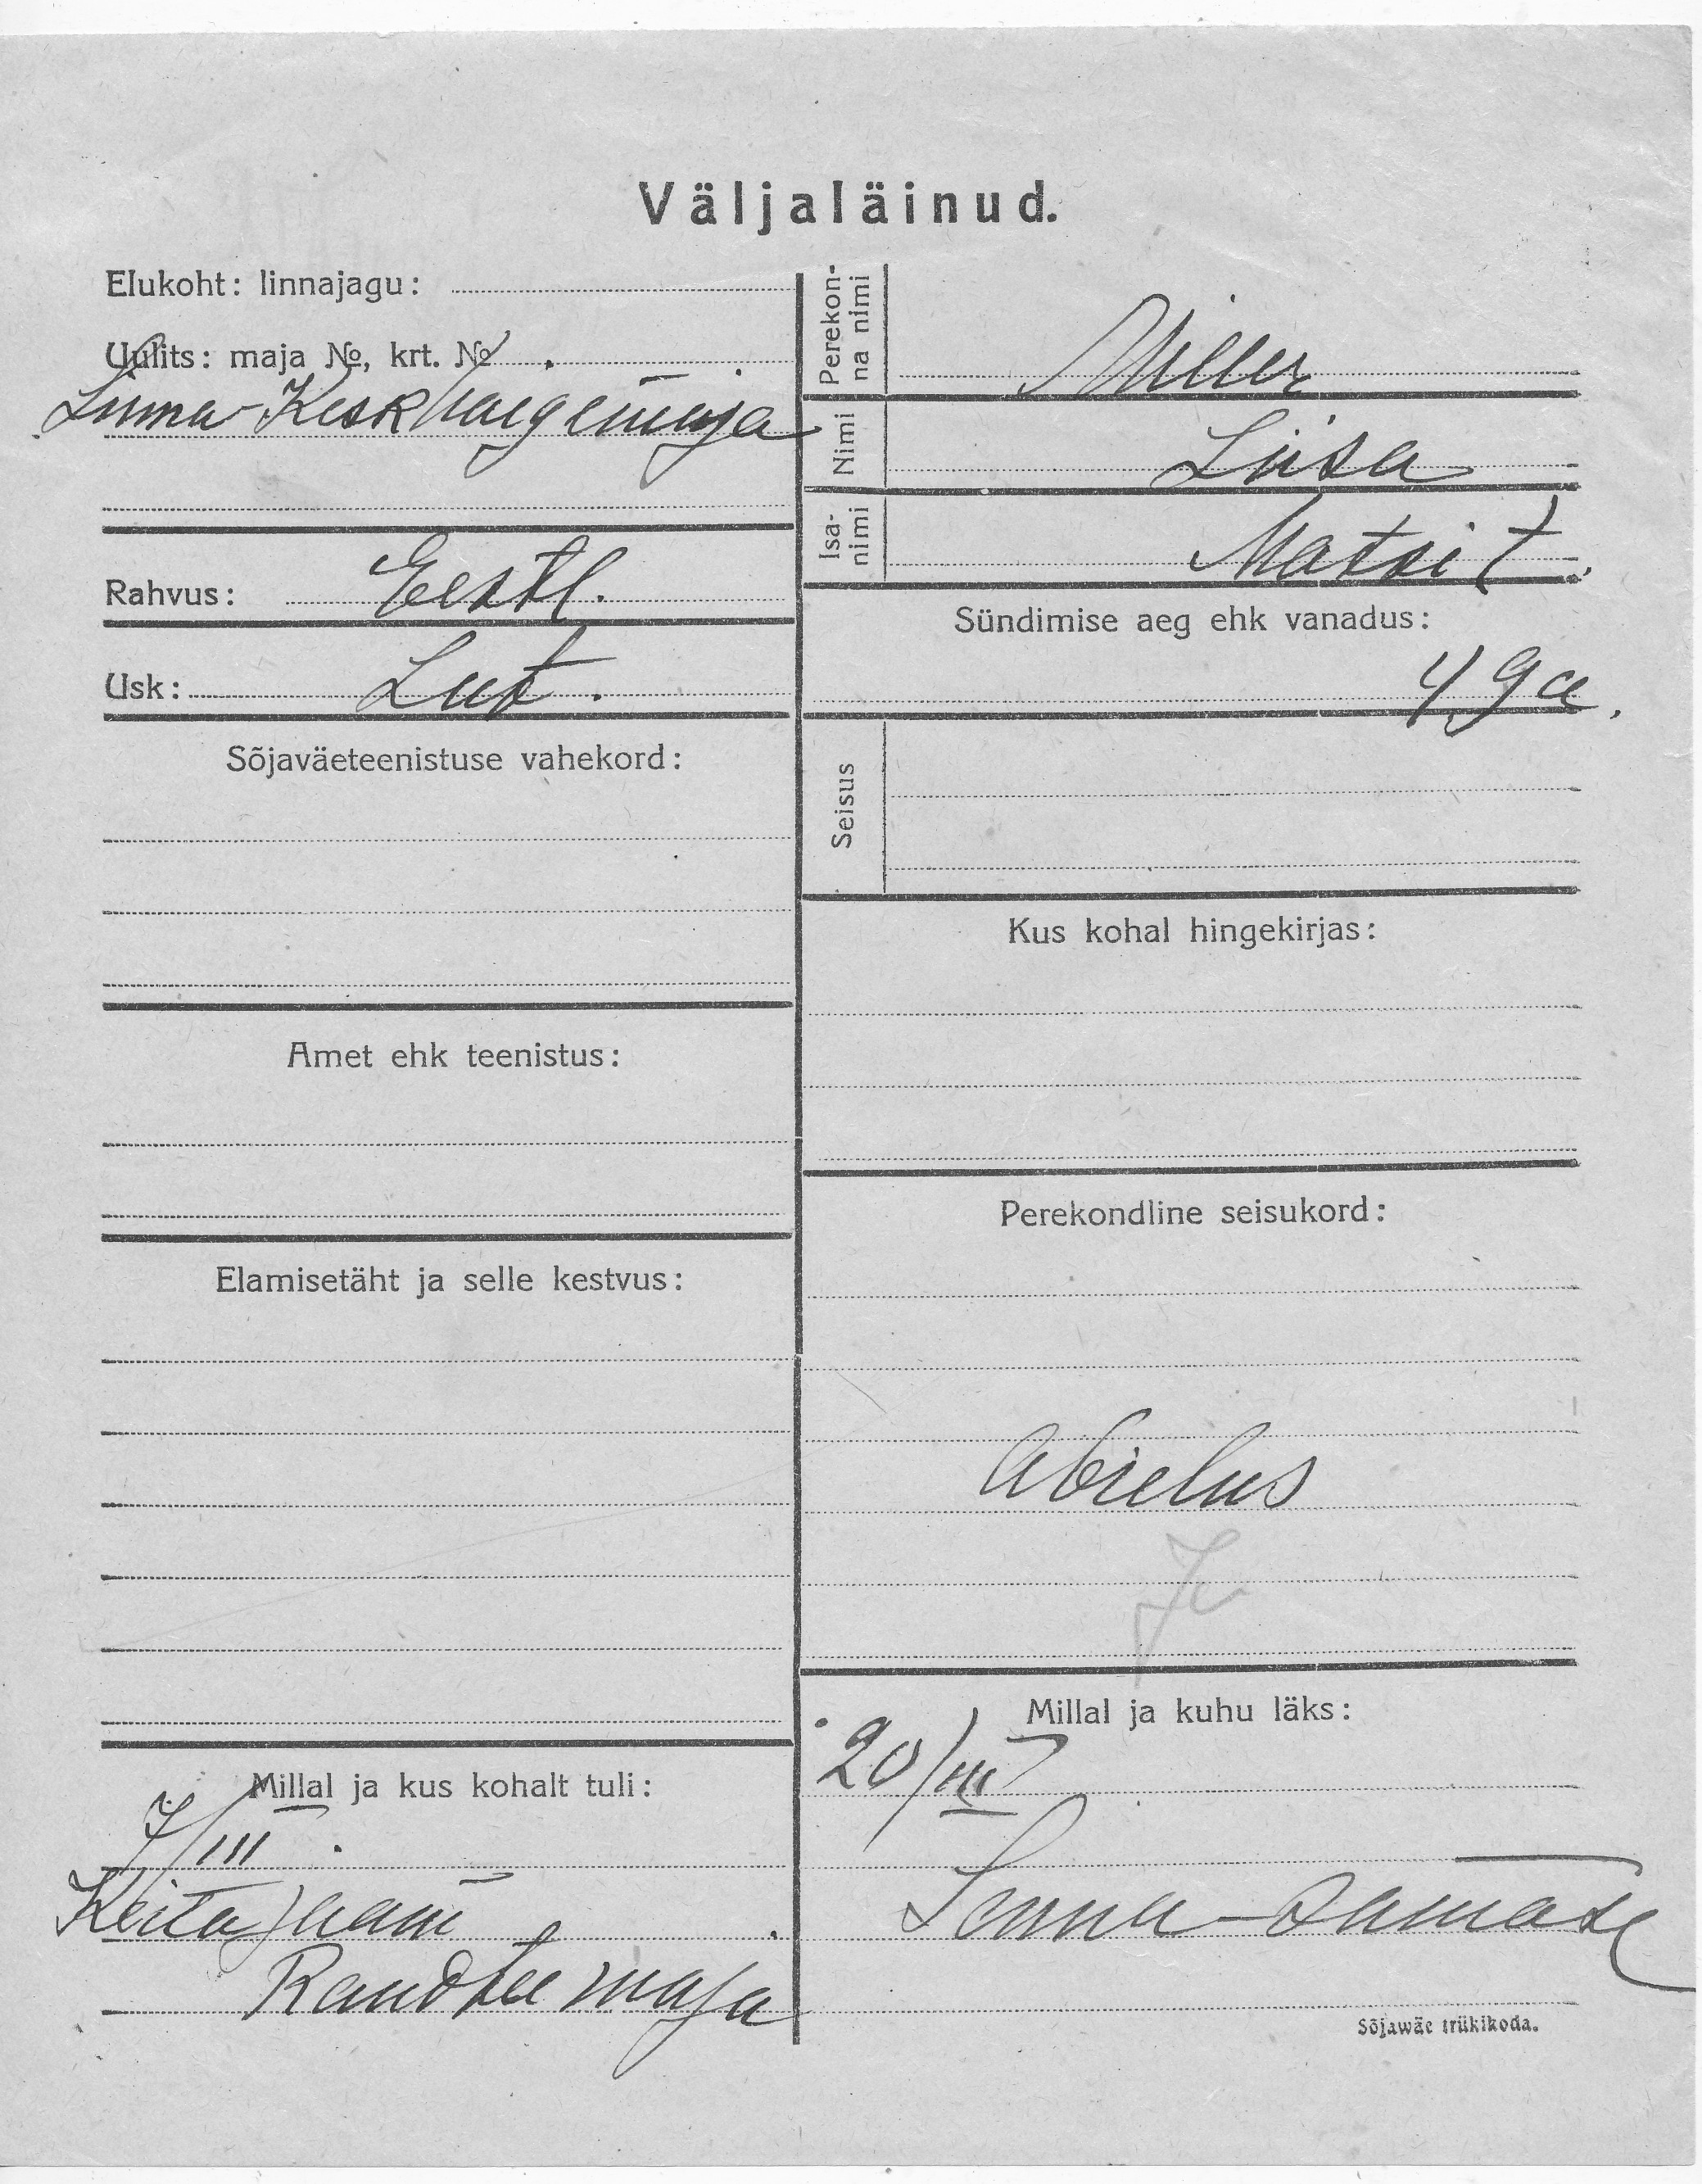 Väljaläinud.
Elukoht: linnajagu:
Uulits: maja №, krt. №
Linna-Keskhaigemaja
Rahvus: Eestl.
Usk: Lut.
Sõjaväeteenistuse vahekord:
Amet ehk teenistus:
Elamisetäht ja selle kestvus:
Millal ja kus kohalt tuli:
7/III.
jaam
Raudtee maja
Perekonna nimi
Miller
Nimi
Liisa
Isanimi
Matsi t.
Sündimise aeg ehk vanadus:
49 a.
Seisus
Kus kohal hingekirjas:
Perekondline seisukord:
Abielus
Millal ja kuhu läks:
20/III
Sõjawäe trükikoda.